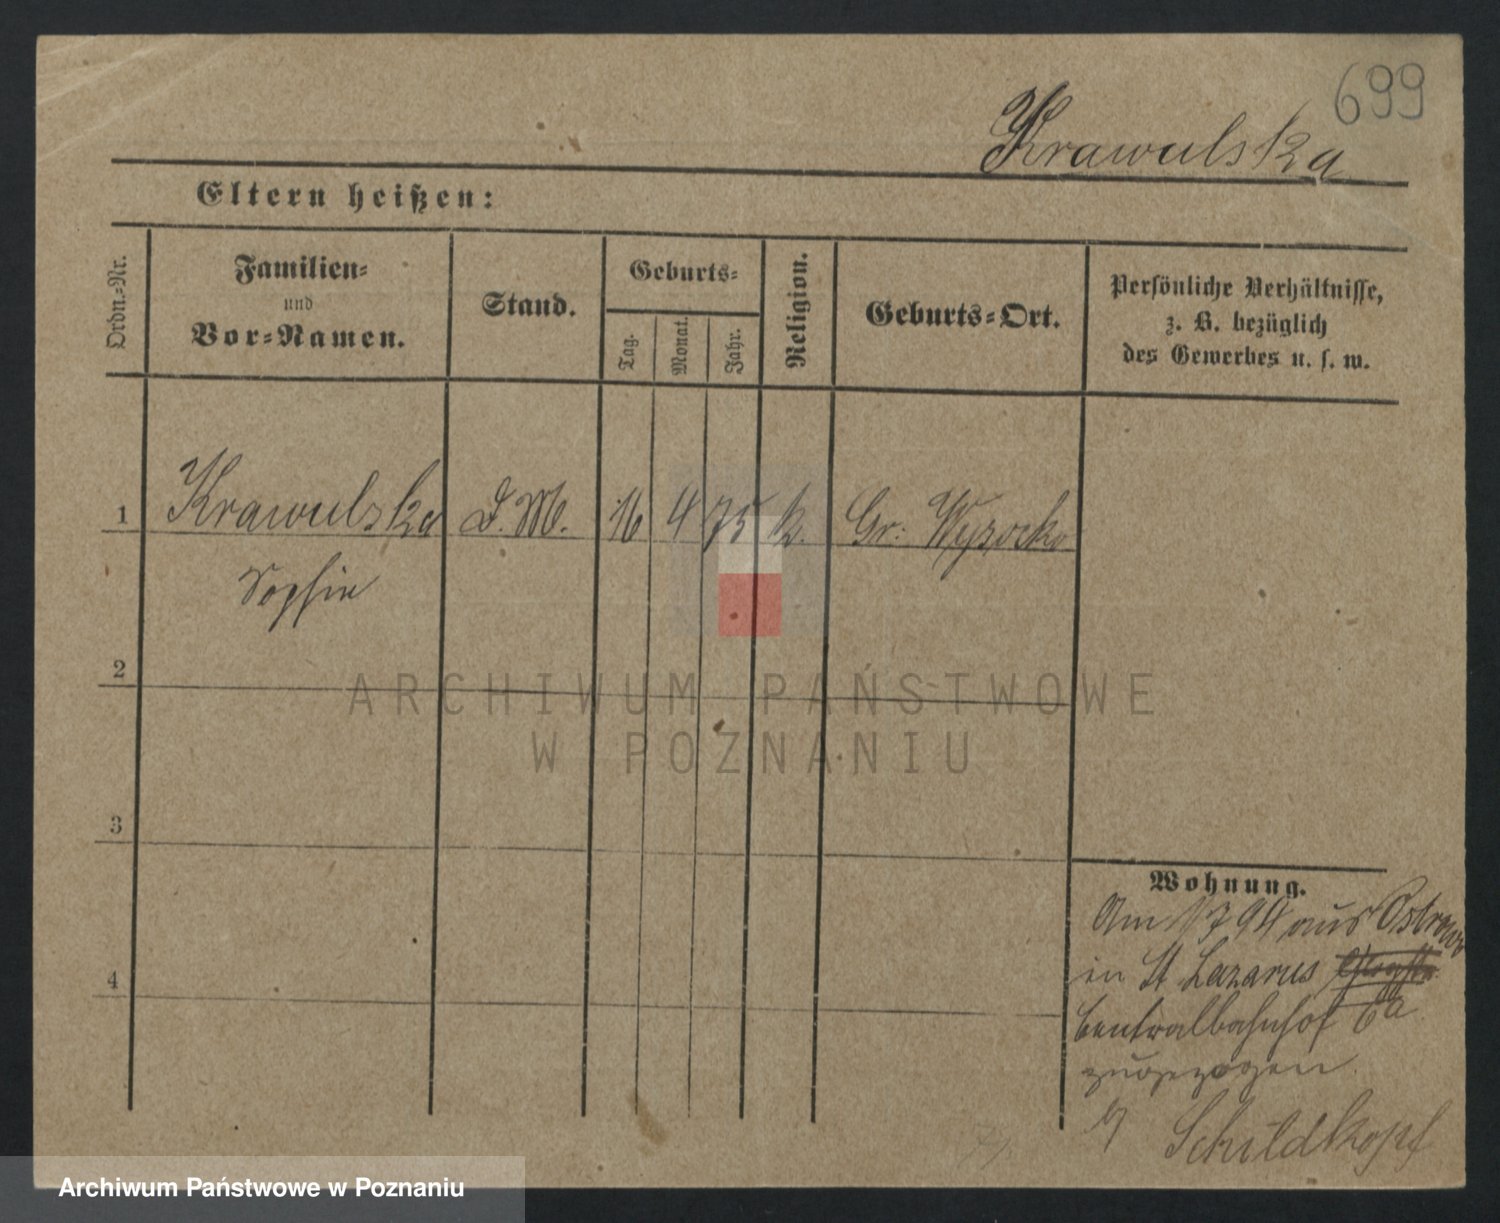 699
Krawulska
Eltern heißen:
Ordn.-Nr.
Familien-
und
Vor-Namen.
Stand.
Geburts-
Tag.
Monat.
Jahr.
Religion.
Geburts-Ort.
Persönliche Verhältnisse,
z. B. bezüglich
des Gewerbes u. s. w.
1 Krawulska D. M. 16 4 75 k. Gr. Wysocko
Sophie
2
ARCHIWUM PAŃSTWOWE
W POZNANIU
3
4
Wohnung.
Am 1/7 94 aus Ostrowo
in St Lazarus
Centralbahnhof 6a
zugezogen.
Schildkopf
Archiwum Państwowe w Poznaniu